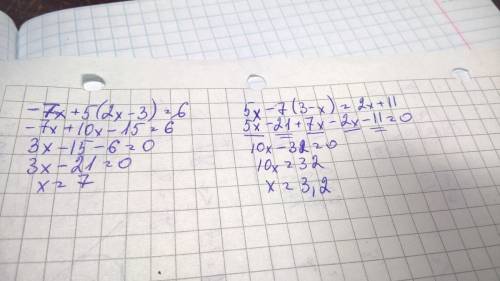 -7x+5(2x-3)=6
-7x+10x-15=6
3x-15-6=0
3x-21=0
x=7
5x-7(3-x)=2x+11
5x-21+7x-2x-11=0
10x-32=0
10x=32
x=3,2